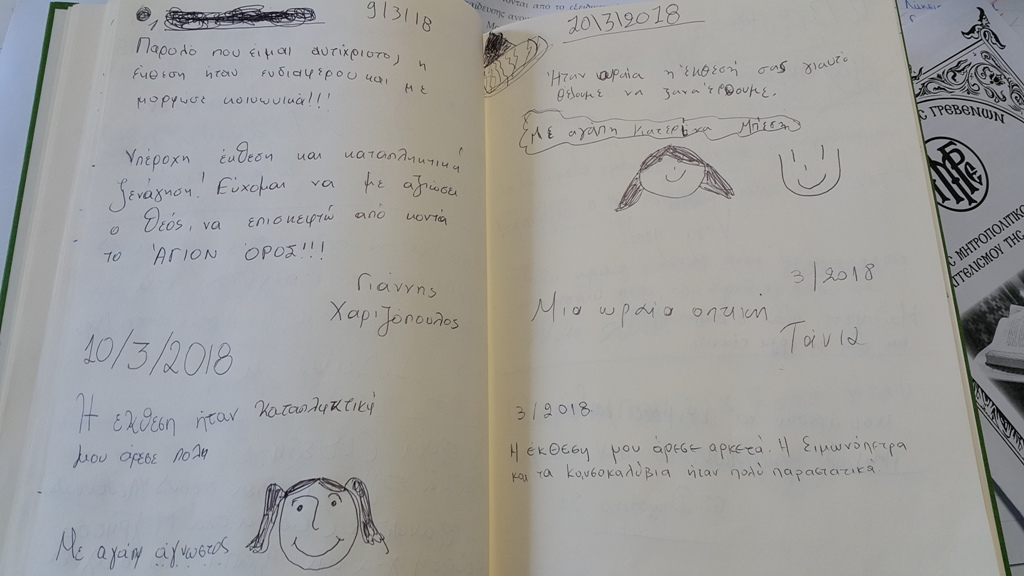 9/3/18
Παρολο που ειμαι αντιχριστος, η
έκθεση ήταν ενδιαφερου και με
μορφωσε κοινωνικά!!!
Υπέροχη έκθεση και καταπληκτική
ξενάγηση! Εύχομαι να με αξιώσει
ο Θεός, να επισκεφτώ από κοντά
το ΆΓΙΟΝ ΌΡΟΣ!!!
Γιάννης
Χαριζόπουλος
10/3/2018
Η έκθεση ήταν καταπληκτική
μου άρεσε πολη
Με αγάπη άγνωστος
10/3/2018
Ήταν ωραία η έκθεσή σας γιαυτό
θέλουμε να ξαναέρθουμε.
Με αγάπη Κατερίνα
3/2018
Μια ωραία οπτική
Τάνια
3/2018
Η έκθεση μου άρεσε αρκετά. Η Σιμωνόπετρα
και τα Καυσοκαλύβια ήταν πολύ παραστατικά
Σ ΓΡΕΒΕΝΩΝ
Σ ΜΗΤΡΟΠΟΛΙΤΙΚΟ
ΓΓΕΛΙΣΜΟΥ ΤΗΣ